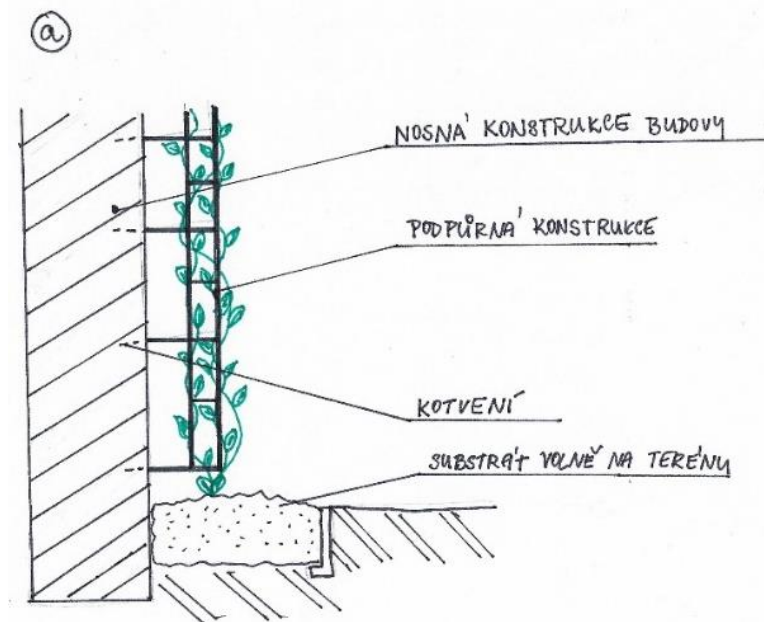 a
NOSNÁ KONSTRUKCE BUDOVY
PODPŮRNÁ KONSTRUKCE
KOTVENÍ
SUBSTRÁT VOLNĚ NA TERÉNU